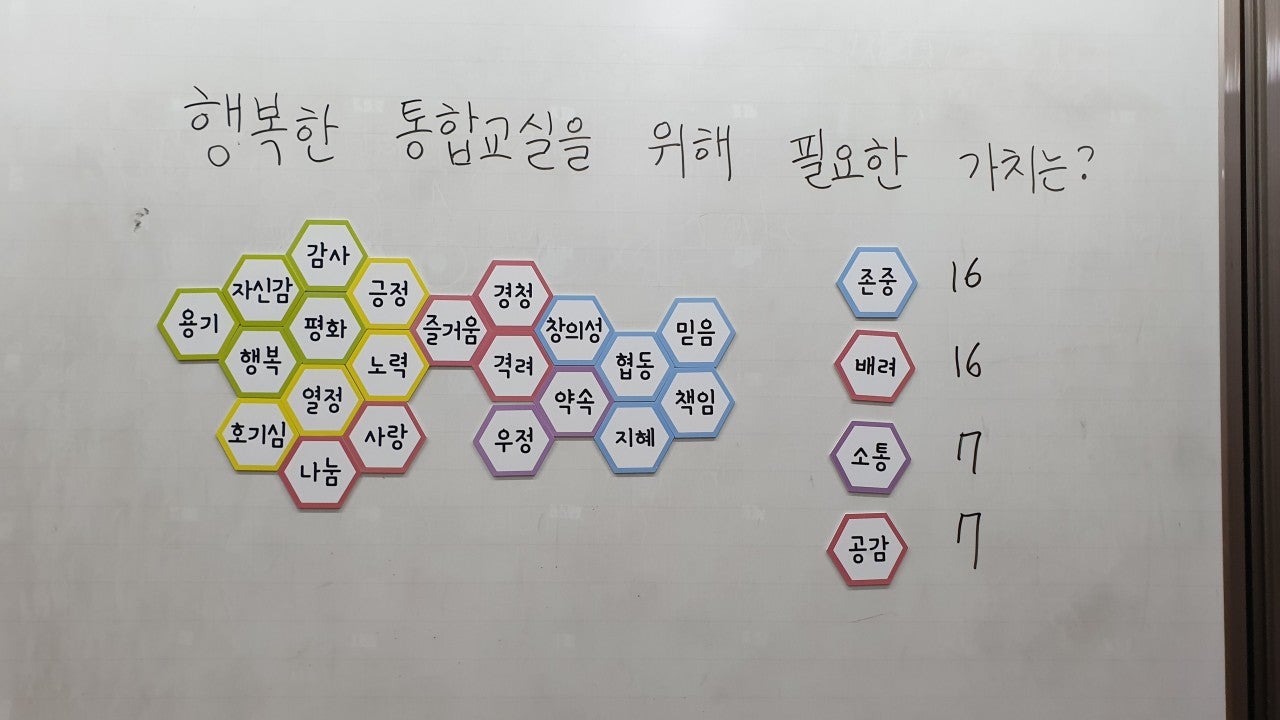 행복한 통합교실을 위해 필요한 가치는?
감사
자신감 긍정 경청
용기 평화 즐거움 창의성 믿음
행복 노력 격려 협동
열정 약속 책임
호기심 사랑 우정 지혜
나눔
존중 16
배려 16
소통 7
공감 7